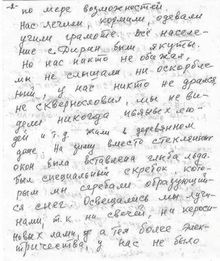 -2-
по мере возможностей
нас лечили, кормили, одевали
учили грамоте. Всё населе-
ние с. Диран были якуты.
Но нас никто не обижал,
мы не слышали ни оскорбле-
ний, у нас никто не дрался
не сквернословил, мы не ви-
дели никогда пьяных лю-
дей и т.д. Жили в деревянном
доме. На зиму вместо стеклянных
окон была вставлена глыба льда.
был специальный скребок, кото-
рым мы скребали образующий-
ся снег. Освещались мы лучи-
нами, т.к. ни свечей, ни кероси-
новых ламп, а тем более элек-
тричества, у нас не было